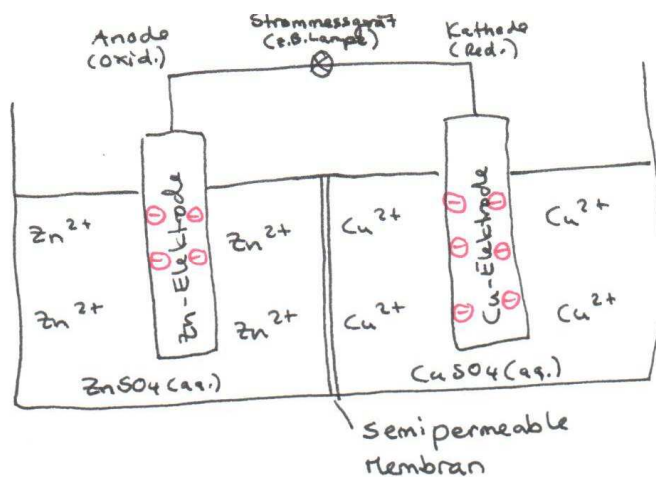 Anode
(Oxid.)
Strommessgerät
(z.B. Lampe)
Kathode
(Red.)
Zn-Elektrode
Cu-Elektrode
Zn²⁺
Zn²⁺
Cu²⁺
Cu²⁺
Zn²⁺
Zn²⁺
Cu²⁺
Cu²⁺
ZnSO₄(aq.)
CuSO₄(aq.)
semipermeable
Membran